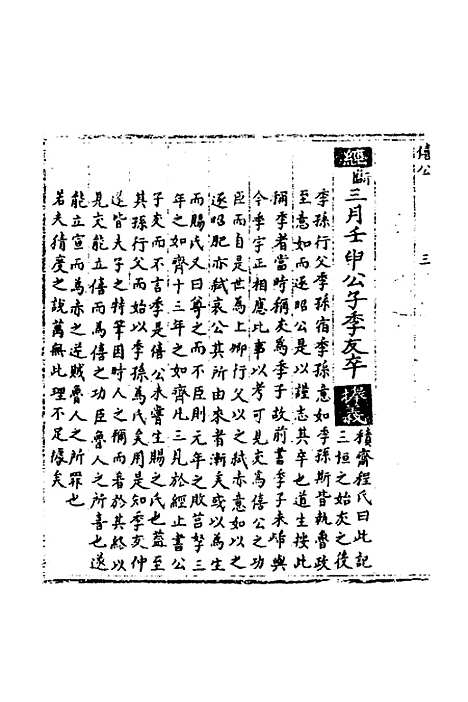 僖公
三
經斷三月壬申公子季友卒 撮義
積齋程氏曰此記
三桓之始友之後
季孫行父季孫宿季孫意如季孫斯皆執魯政
至意如而逐昭公是以謹志其卒也道生按此
稱季者當時稱友為季子故前書季子来歸與
今季字正相應此事以考可見友為僖公之功
臣而自是世為上卿行父以之弑赤意如以之
逐昭肥亦弑哀公其所由來者漸矣或以為生
而賜氏又曰尊之而不臣則元年之敗莒挐三
年之如齊十三年之如齊凡三見於經止書公
子友而不言季是僖公未嘗生賜之氏也益至
其孫行父而始以季孫為氏矣用是知季友仲
遂皆夫子之特筆因時人之稱而著於其終以
見友能立僖而為僖之功臣魯人之所喜也遂
能立宣而為赤之逆賊魯人之所罪也
若夫猜度之說萬無此理不足據矣